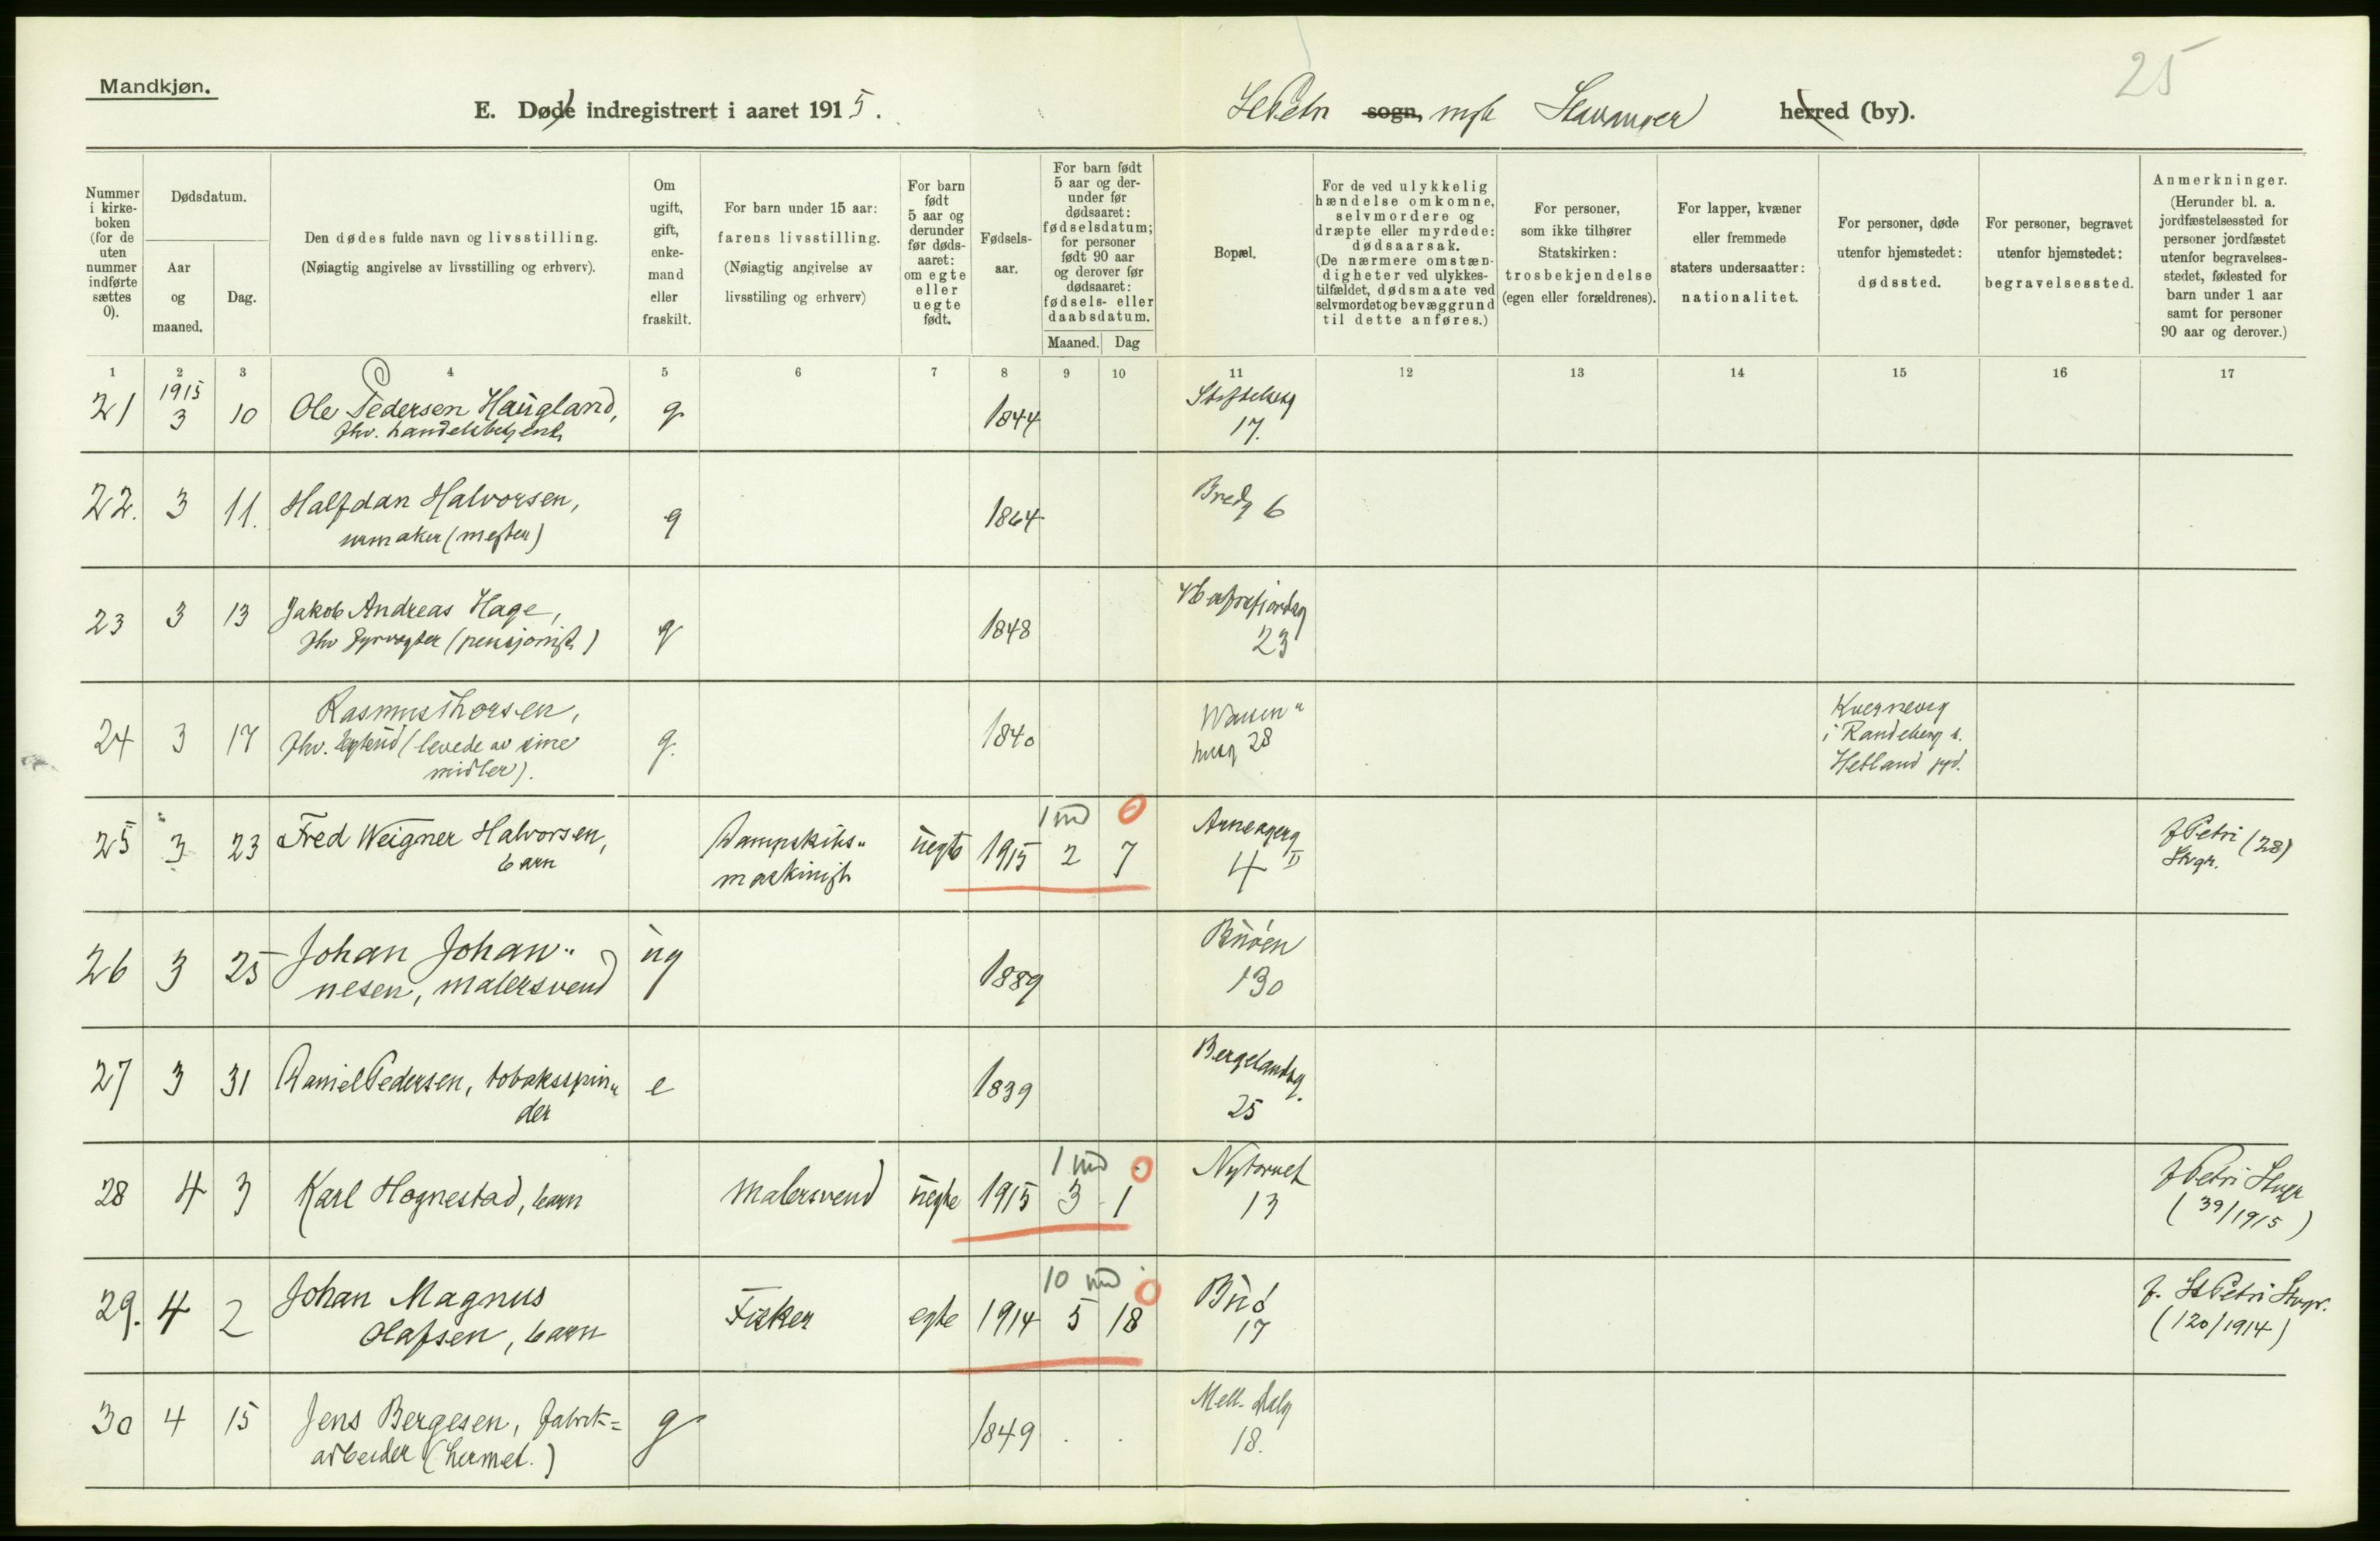 25
Mandkjøn.
E. Døde indregistrert i aaret 1915.
St Petri sogn, mgh Stavanger herred (by).
Nummer i kirke-boken (for de uten nummer indførte sættes 0).
Dødsdatum.
Aar og maaned.
Dag.
Den dødes fulde navn og livsstilling.
(Nøiagtig angivelse av livsstilling og erhverv).
Om ugift, gift, enke-mand eller fraskilt.
For barn under 15 aar:
farens livsstilling.
(Nøiagtig angivelse av livsstiling og erhverv)
For barn født 5 aar og derunder før døds-aaret: om egte eller uegte født.
Fødsels-aar.
For barn født 5 aar og der-under før dødsaaret: fødselsdatum; for personer født 90 aar og derover før dødsaaret: fødsels- eller daabsdatum.
Maaned. Dag
Bopæl.
For de ved ulykkelig hændelse omkomne, selvmordere og dræpte eller myrdede: dødsaarsak.
(De nærmere omstæn-digheter ved ulykkes-tilfældet, dødsmaate ved selvmordet og bevæggrund til dette anføres.)
For personer, som ikke tilhører Statskirken: trosbekjendelse (egen eller forældrenes).
For lapper, kvæner eller fremmede staters undersaatter: nationalitet.
For personer, døde utenfor hjemstedet: dødssted.
For personer, begravet utenfor hjemstedet: begravelsessted.
Anmerkninger.
(Herunder bl. a. jordfæstelsessted for personer jordfæstet utenfor begravelses-stedet, fødested for barn under 1 aar samt for personer 90 aar og derover.)
1 2 3 4 5 6 7 8 9 10 11 12 13 14 15 16 17
1915
21 3 10 Ole Pedersen Haugland, g 1844
fhv. handelsbetjent 17.
22. 3 11. Halfdan Halvorsen, g 1864 Bredg 6
urmaker (mester)
23 3 13 Jakob Andreas Hage, g 1848 Hafrsfjordsg
fhv fyrvogter (pensjonist) 23
24 3 17 Rasmus Thorsen, g. 1840 28
fhv. (levede av sine
midler).
Kvernevig
i Randeberg s.
Hetland pgd.
1 md 0
25 3 23 Fred Weigner Halvorsen, Dampskibs- uegte 1915 2 7 Arneagerg
barn maskinist 4 II
f Petri (28)
Stvgr.
26 3 25 Johan Johan- ug 1889 Buøen
nesen, malersvend 130
27 3 31 Daniel Pedersen, tobaksspin- e 1839 Bergelandsg.
der 25
1 md 0
28 4 3 Karl Hognestad, barn Malersvend uegte 1915 3 1 Nytorvet
13
f Petri Stvgr
(39/1915)
10 md 0
29. 4 2 Johan Magnus Fisker egte 1914 5 18 Buø
Olafsen, barn 17
f. St Petri Stvgr.
(120/1914)
30 4 15 Jens Bergesen, fabrik= g 1849 Mell. Dalg
arbeider (hermet.) 18.